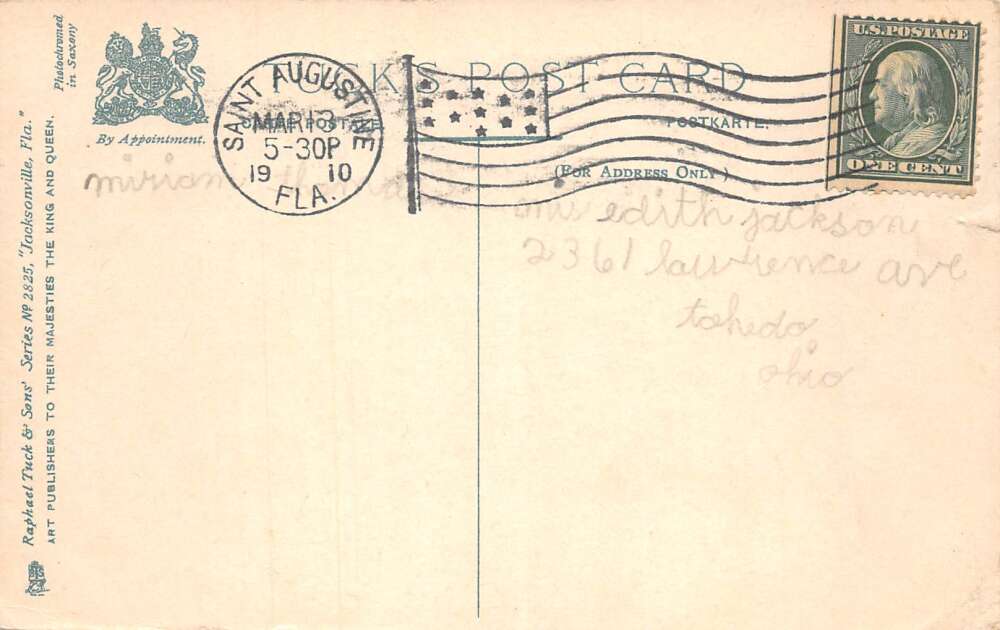 Photochromed
in Saxony
By Appointment.
Raphael Tuck & Sons' Series Nº 2825, "Jacksonville, Fla."
ART PUBLISHERS TO THEIR MAJESTIES THE KING AND QUEEN.
TUCK'S POST CARD
CARTE POSTALE
POSTKARTE.
(FOR ADDRESS ONLY)
SAINT AUGUSTINE
MAR 13
5-30P
19 10
FLA.
U.S. POSTAGE
ONE CENT
miriam
miss edith jackson
2361 lawrence ave
tohedo
ohio